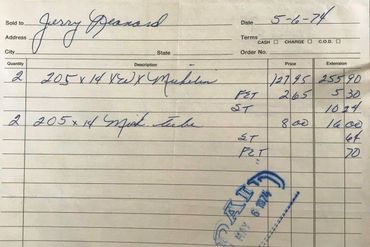 Sold to Jerry Leonard Date 5-6-74
Address Terms
CASH □ CHARGE □ C.O.D. □
City State Order No.
Quantity Description Price Extension
2 205 x 14 XWX Michelin 127.95 255.90
PET 2 65 5 30
ST 10 24
2 205 x 14 Mich. tube 8 00 16.00
ST 64
PET 70
PAID
MAY 6 1974